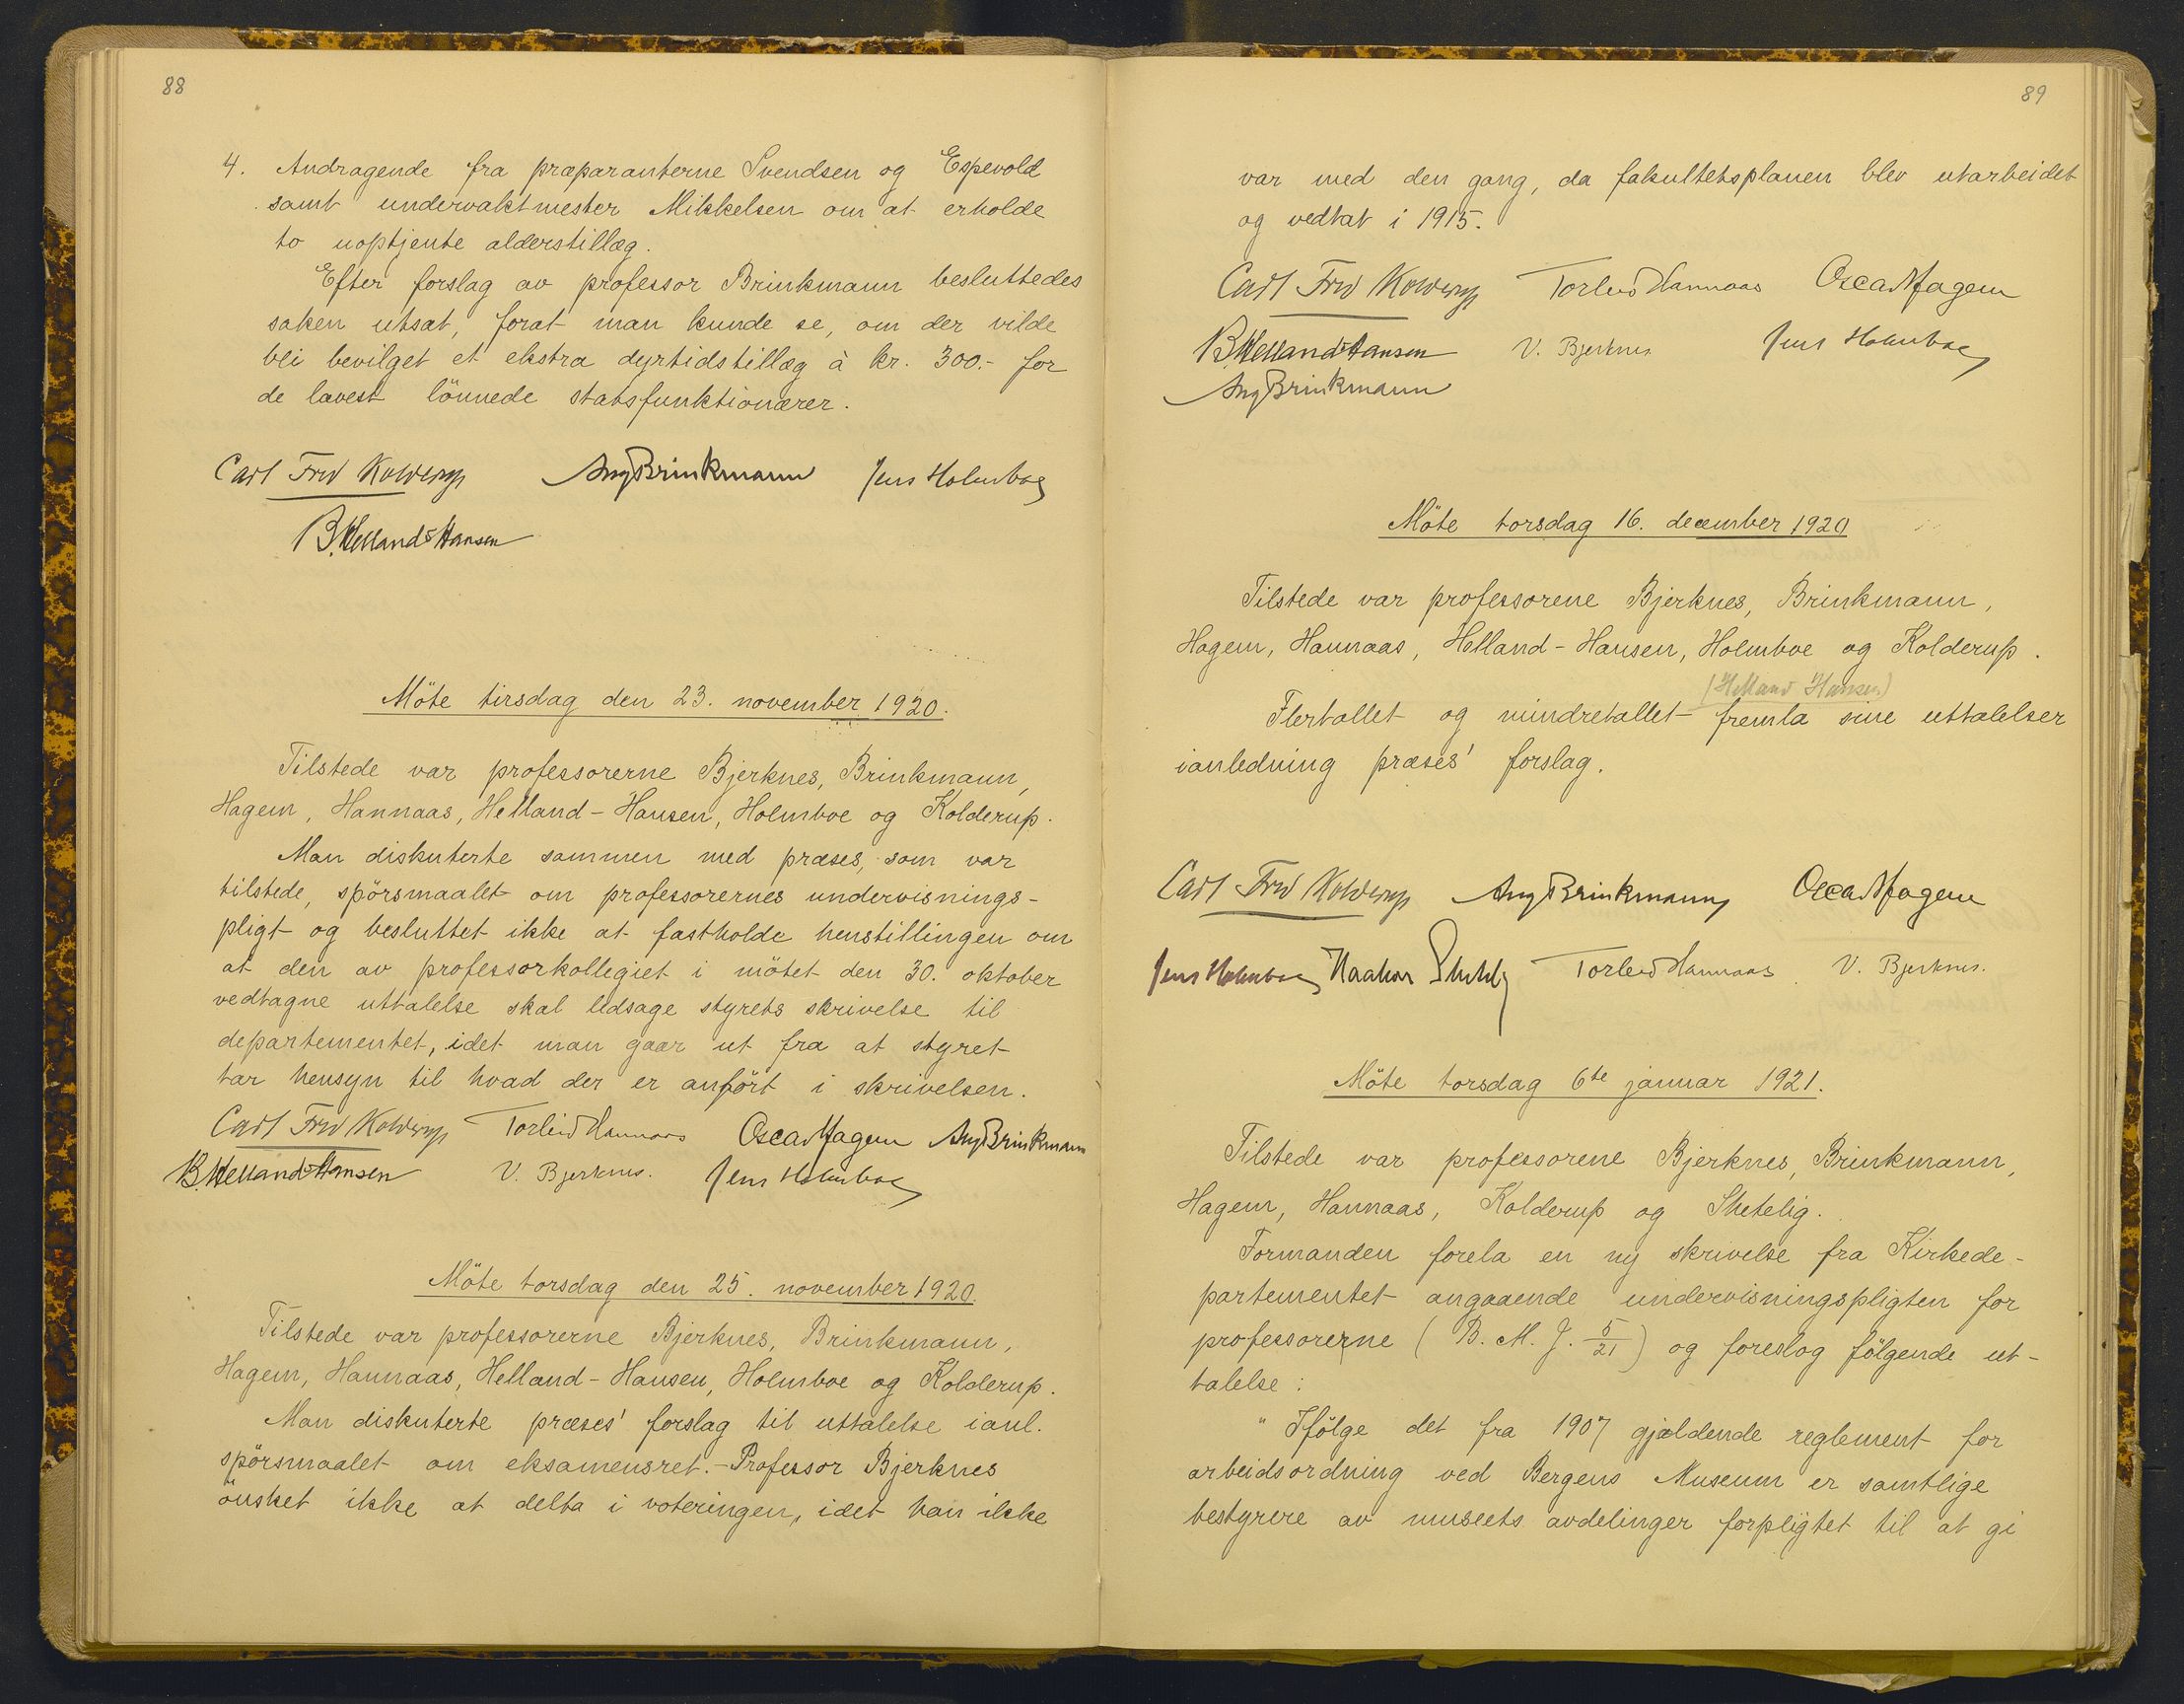 88
4. Andragende fra præparanterne Svendsen og Espevold
samt undervaktmester Mikkelsen om at erholde
to uoptjente alderstillæg.
Efter forslag av professor Brinkmann besluttedes
saken utsat, forat man kunde se, om der vilde
bli bevilget et ekstra dyrtidstillæg à kr. 300.- for
de lavest lönnede statsfunktionærer.
Carl Fred Kolderup Aug Brinkmann Jens Holmboe
B. Helland-Hansen
Möte tirsdag den 23. november 1920.
Tilstede var professorerne Bjerknes, Brinkmann,
Hagem, Hannaas, Helland-Hansen, Holmboe og Kolderup.
Man diskuterte sammen med præses, som var
tilstede, spörsmaalet om professorernes undervisnings-
pligt og besluttet ikke at fastholde henstillingen om
at den av professorkollegiet i mötet den 30. oktober
vedtagne uttalelse skal ledsage styrets skrivelse til
departementet, idet man gaar ut fra at styret
tar hensyn til hvad der er anfört i skrivelsen.
Carl Fred Kolderup Torleiv Hannaas Oscar Hagem Aug Brinkmann
B. Helland-Hansen V. Bjerknes. Jens Holmboe
Möte torsdag den 25. november 1920.
Tilstede var professorerne Bjerknes, Brinkmann,
Hagem, Hannaas, Helland-Hansen, Holmboe og Kolderup.
Man diskuterte præses' forslag til uttalelse ianl.
spörsmaalet om eksamensret. - Professor Bjerknes
önsket ikke at delta i voteringen, idet han ikke
89
var med den gang, da fakultetsplanen blev utarbeidet
og vedtat i 1915.
Carl Fred Kolderup Torleiv Hannaas Oscar Hagem
B. Helland-Hansen V. Bjerknes Jens Holmboe
Aug Brinkmann
Möte torsdag 16. december 1920
Tilstede var professorene Bjerknes, Brinkmann,
Hagem, Hannaas, Helland-Hansen, Holmboe og Kolderup.
(Helland Hansen)
Flertallet og mindretallet fremla sine uttalelser
ianledning præses' forslag.
Carl Fred Kolderup Aug Brinkmann Oscar Hagem
Jens Holmboe Haakon Shetelig Torleiv Hannaas V. Bjerknes.
Möte torsdag 6te januar 1921.
Tilstede var professorene Bjerknes, Brinkmann,
Hagem, Hannaas, Kolderup og Shetelig.
Formanden forela en ny skrivelse fra Kirkede-
partementet angaaende undervisningspligten for
professorerne ( B. M. J. 5/21 ) og foreslog fölgende ut-
talelse :
" Ifölge det fra 1907 gjældende reglement for
arbeidsordning ved Bergens Museum er samtlige
bestyrere av museets avdelinger forpligtet til at gi